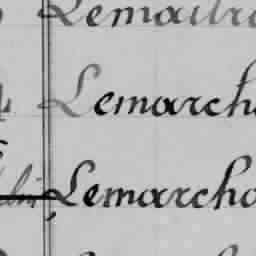 Lemaitr
Lemarch
Lemarcha